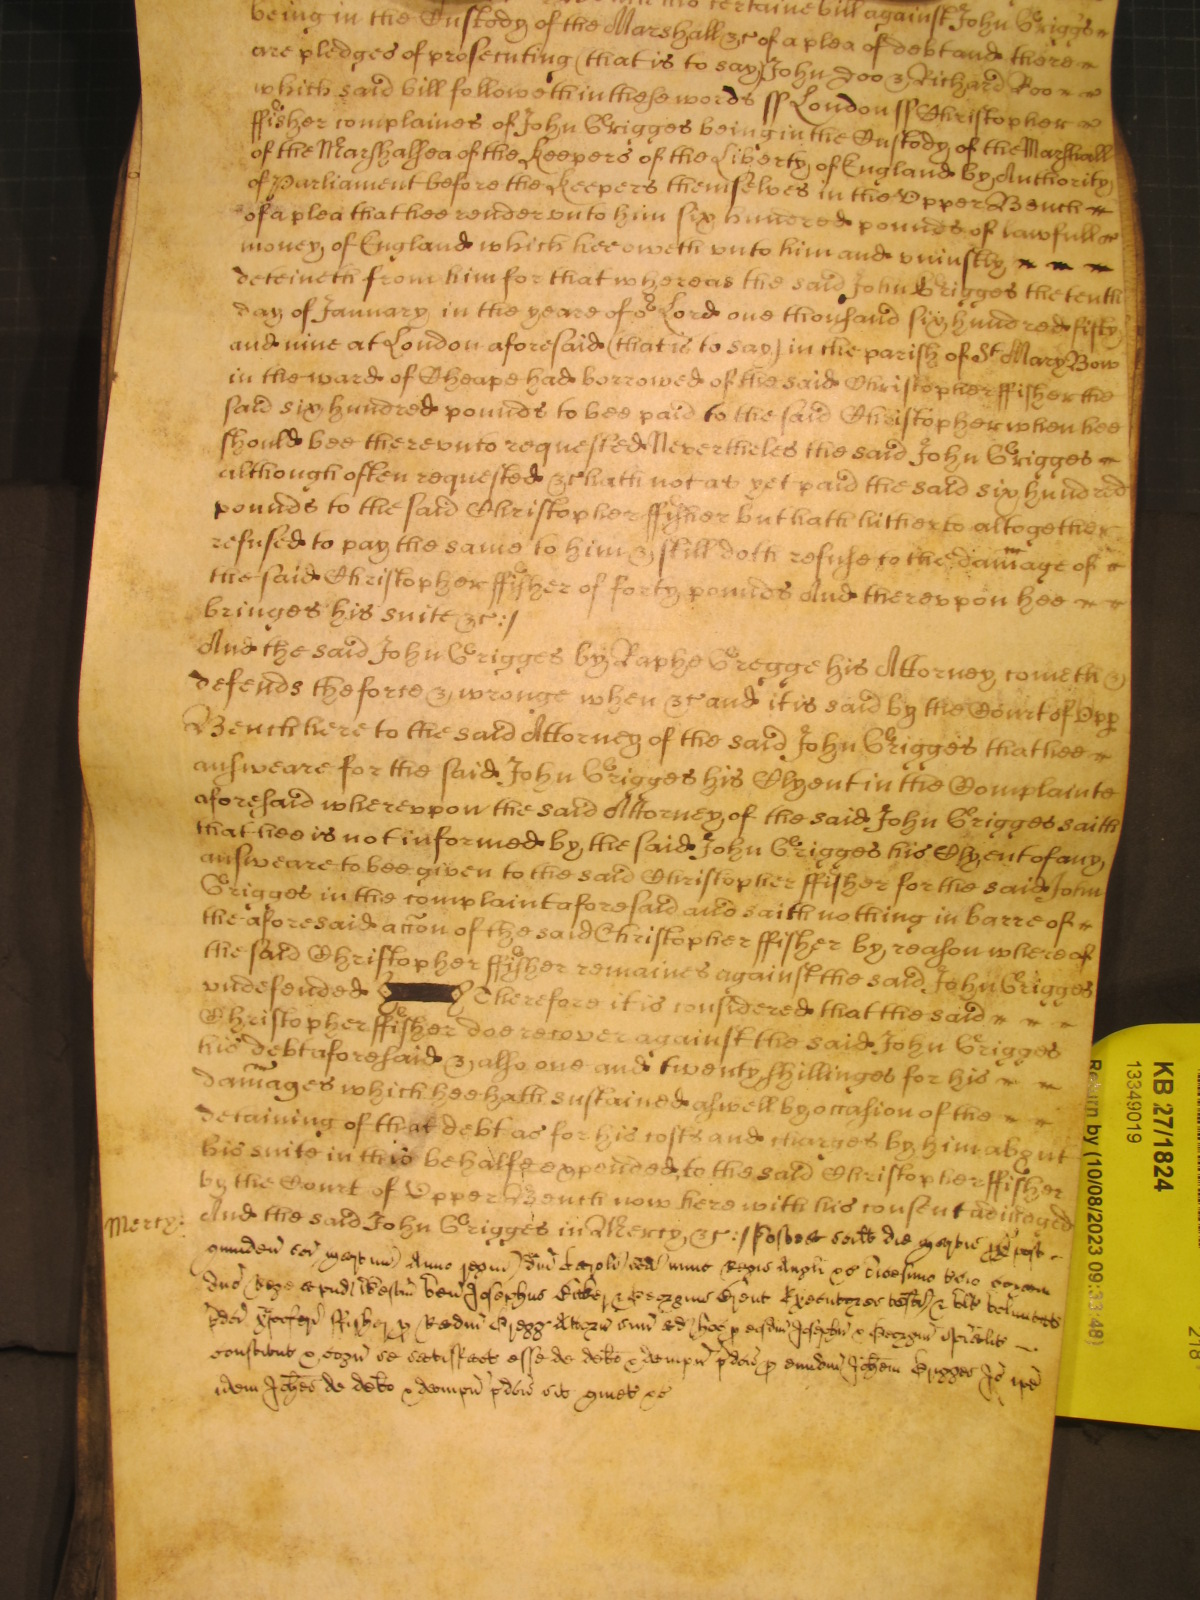 certaine bill against John Grigges
being in the Custody of the Marshall &c of a plea of debt and there
are pledges of prosecuting (that is to say) John Doo & Richard Roo
which said bill followeth in these words ss London ss Christopher
ffisher complaines of John Grigges being in the Custody of the Marshall
of the Marshalsea of the Keepers of the Liberty of England by Authority
of Parliament before the Keepers themselves in the Upper Bench
of a plea that hee render unto him six hundred pounds of lawfull
money of England which hee oweth unto him and uniustly
deteineth from him for that whereas the said John Grigges the tenth
day of January in the yeare of or Lord one thousand six hundred fifty
and nine at London aforesaid (that is to say) in the parish of St Mary Bow
in the ward of Cheape had borrowed of the said Christopher ffisher the
said six hundred pounds to bee paid to the said Christopher when hee
should bee thereunto requested Nevertheles the said John Grigges
although often requested &c hath not as yet paid the said six hundred
pounds to the said Christopher ffisher but hath hitherto altogether
refused to pay the same to him & still doth refuse to the damage of
the said Christopher ffisher of forty pounds And thereupon hee
bringes his suite &c:/
And the said John Grigges by Raphe Gregge his Attorney cometh &
defends the force & wronge when &c and it is said by the Court of Upp
Bench here to the said Attorney of the said John Grigges that hee
answeare for the said John Grigges his Clyent in the Complainte
aforesaid whereupon the said Attorney of the said John Grigges saith
that hee is not informed by the said John Grigges his Clyent of any
answeare to bee given to the said Christopher ffisher for the said John
Grigges in the complaint aforesaid and saith nothing in barre of
the aforesaid accon of the said Christopher ffisher by reason whereof
the said Christopher ffisher remaines against the said John Grigges
undefended Therefore it is considered that the said
Christopher ffisher doe recover against the said John Grigges
his debt aforesaid & also one and twenty shillinges for his
damages which hee hath sustained aswell by occasion of the
detaining of that debt as for his costs and charges by him about
his suite in this behalfe expended to the said Christopher ffisher
by the Court of Upper Bench now here with his consent adiudged
Mercy: And the said John Grigges in Mercy &c:/ Postea scilt die
Anno regni dni Caroli scdi nunc Regis Angli &c
dno Rege apud Westm ven Josephus & Georgius Executores
ffisher p Radm Gregg Attorn suu
constitut & cogn se satisfact esse de debo & dampn pdcis p eundm Johem Grigges Io ipe
idem Johes de debo & dampn pdcis sit quiet &c
KB 27/1824
13349019
Return by (10/08/2023 09:33:48)
218